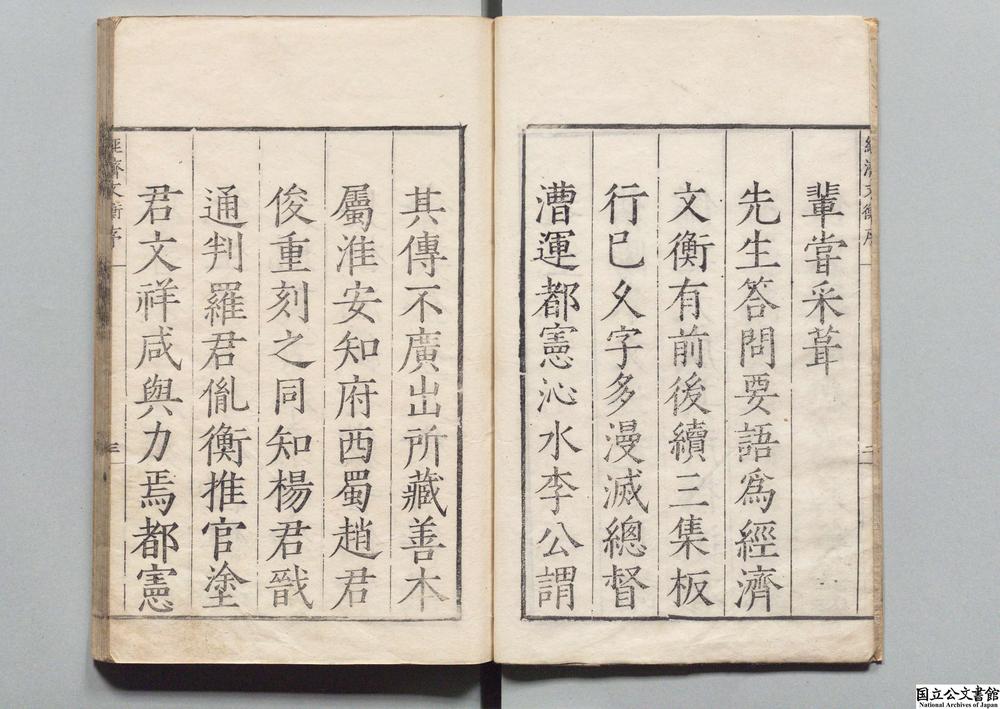 輩嘗采葺
先生答問要語爲經濟
文衡有前後續三集板
行已久字多漫滅總督
漕運都憲沁水李公謂
其傳不廣出所藏善本
屬淮安知府西蜀趙君
俊重刻之同知楊君戩
通判羅君胤衡推官塗
君文祥咸與力焉都憲
經濟文衡序
二
經濟文衡序
三
国立公文書館
National Archives of Japan